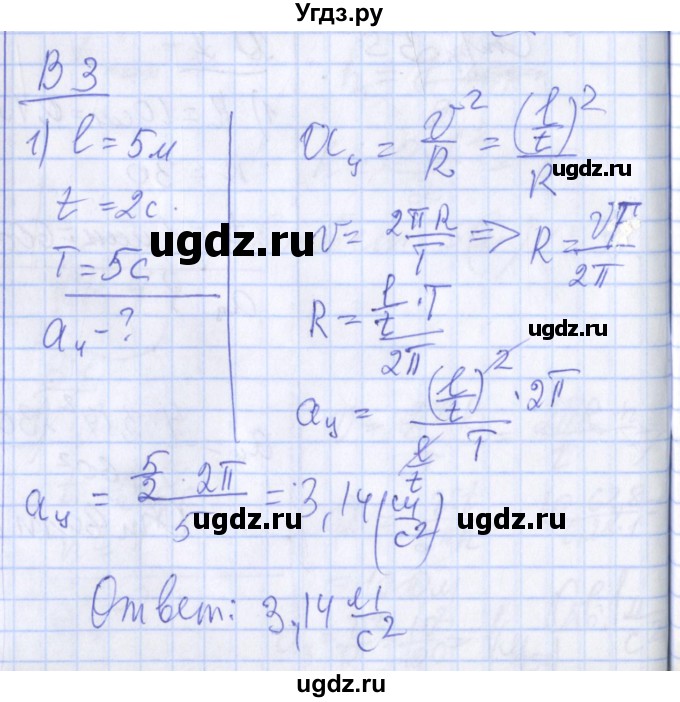 Угдз.ру
В 3
1) l = 5м
t = 2с.
T = 5с
aц - ?
aц = v²/R = (l/t)²/R
v = 2πR/T => R = vT/2π
R = (l/t · T)/2π
aц = ((l/t)² · 2π)/(l/t T)
aц = (5/2 · 2π)/5 = 3,14 (м/с²)
Ответ: 3,14 м/с²
ugdz.ru
ugdz.ru
ugdz.ru
ugdz.ru
ugdz.ru
ugdz.ru
ugdz.ru
ugdz.ru